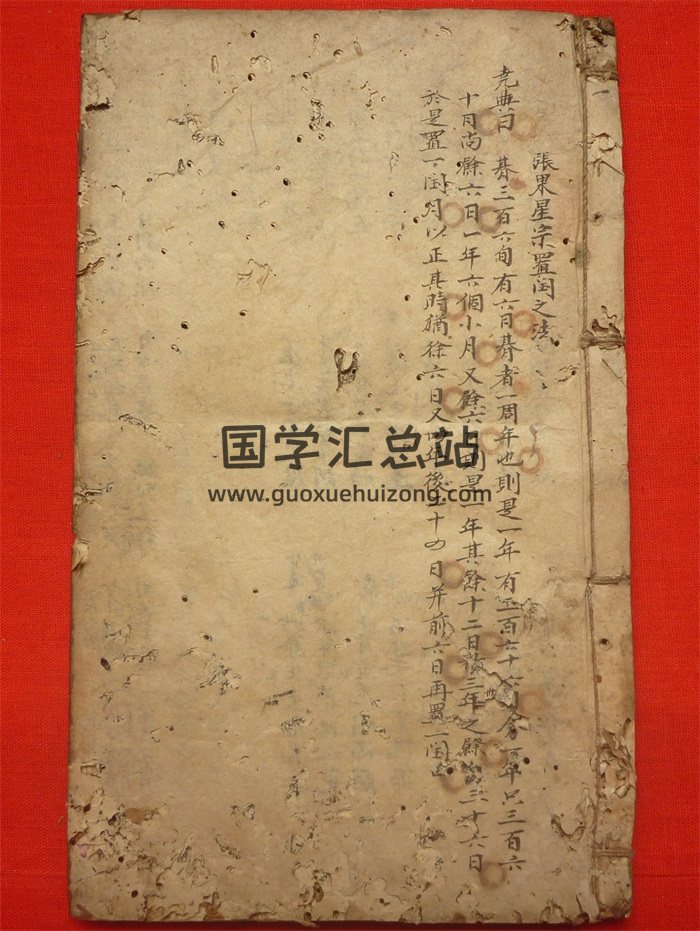 張果星宗置閏之法
堯典曰 朞三百六旬有六日朞者一周年也則是一年有三百六十六日今一年只三百六
十日尚餘六日一年六個小月又餘六日則是一年其餘十二日積三年之餘三十六日
於是置一閏月以正其時猶徐六日又四年後 十四日并前六日再置一閏
国学汇总站
www.guoxuehuizong.com